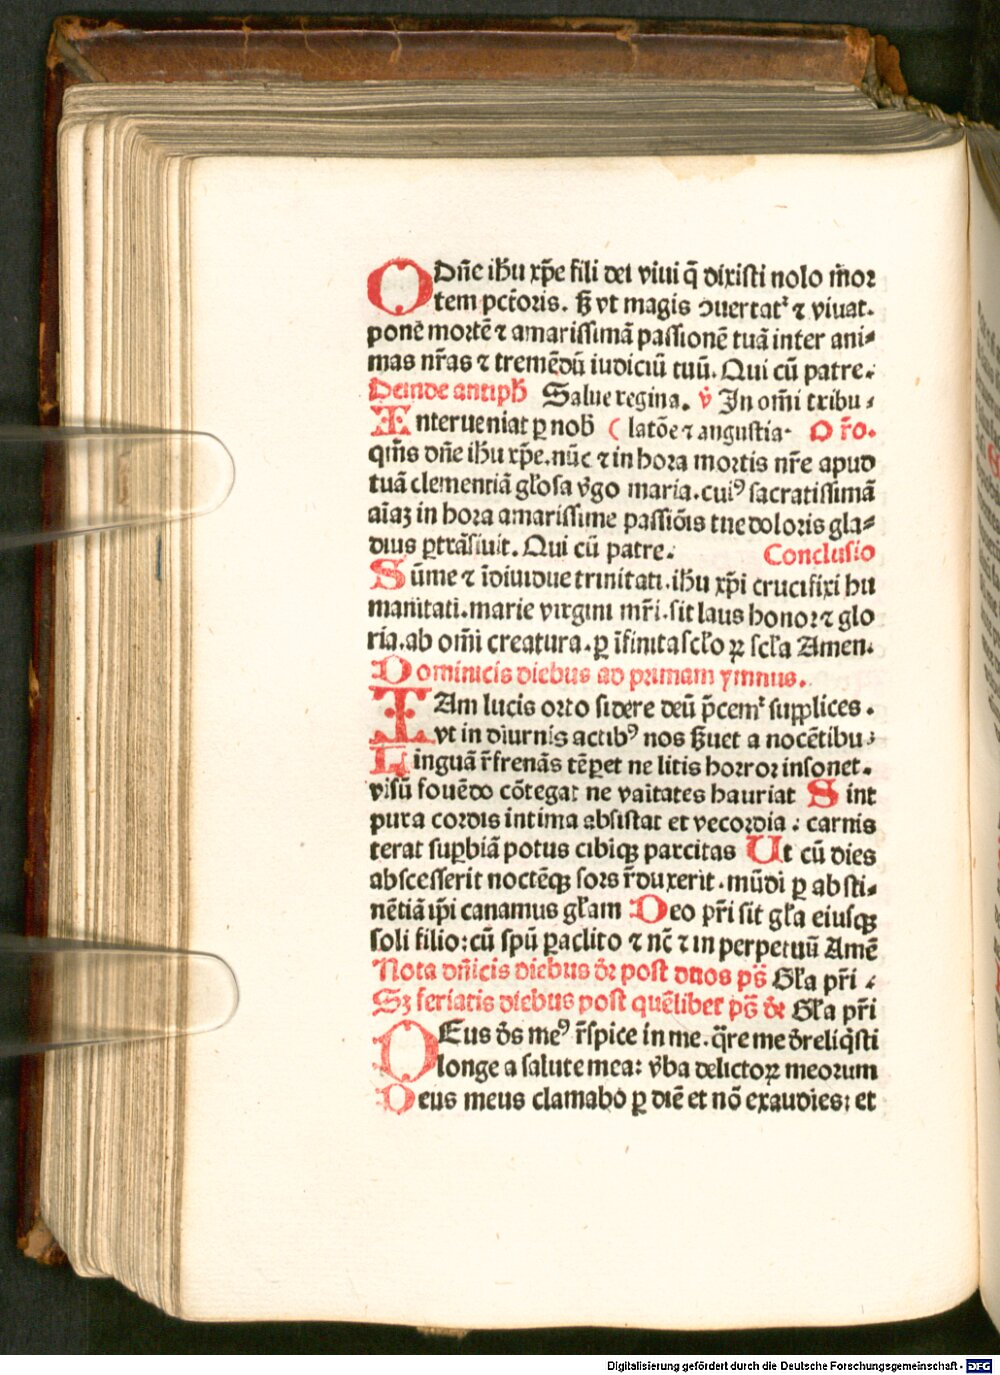 O Dn̄e ih̄u xp̄e fili dei viui q̄ dixisti nolo m̄or
tem pctōris. sꝫ vt magis ꝯuertatʳ ⁊ viuat.
pone mortē ⁊ amarissimā passionē tuā inter ani⸗
mas nr̄as ⁊ tremēdū iudiciū tuū. Qui cū patre.
Deinde antiph̄ Salue regina. v̄ In om̄i tribu⸗
Interueniat ꝑ nob̄ ( latōe ⁊ angustia. O r̄o.
qm̄s dn̄e ih̄u xp̄e. nūc ⁊ in hora mortis nr̄e apud
tuā clementiā gl̄osa v̄go maria. cuiꝰ sacratissimā
aīaꝫ in hora amarissime passiōis tue doloris gla⸗
dius ꝑtrāsiuit. Qui cū patre. Conclusio
Sūme ⁊ īdiuidue trinitati. ih̄u xp̄i crucifixi hu
manitati. marie virgini mr̄i. sit laus honor ⁊ glo
ria. ab om̄i creatura. ꝑ īfinita scl̄o ꝝ scl̄a Amen.
Dominicis diebus ad primam ymnus.
IAm lucis orto sidere deū p̄cemʳ supplices.
vt in diurnis actibꝰ nos s̄uet a nocētibus
Linguā r̄frenās tēꝑet ne litis horror insonet.
visū fouēdo cōtegat ne vaītates hauriat Sint
pura cordis intima absistat et vecordia: carnis
terat suꝑbiā potus cibiqꝫ parcitas Ut cū dies
abscesserit noctēqꝫ sors r̄duxerit. mūdi ꝑ absti⸗
nētiā ip̄i canamus gl̄am Deo pr̄i sit gl̄a eiusqꝫ
soli filio: cū sp̄u ꝑaclito ⁊ nc̄ ⁊ in perpetuū Amē
Nota dn̄icis diebus d̄r post duos ps̄ Gl̄a pr̄i⸗
Sꝫ feriatis diebus post quēlibet ps̄ d̄r Gl̄a pr̄i
DEus d̄s meꝰ r̄spice in me. q̄re me d̄reliq̄sti
longe a salute mea: v̄ba delictoꝝ meorum
Deus meus clamabo ꝑ diē et nō exaudies: et
Digitalisierung gefördert durch die Deutsche Forschungsgemeinschaft - DFG